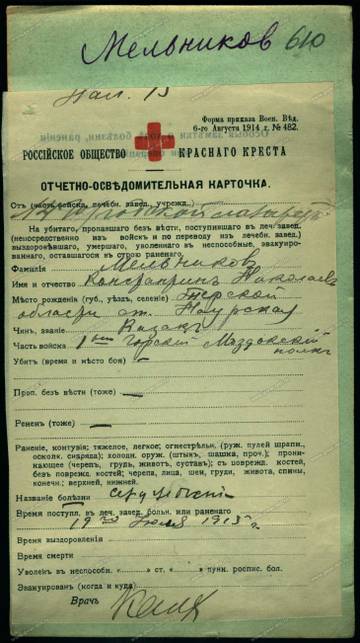 Мельников 610
Форма приказа Воен. Вѣд.
6-го Августа 1914 г. № 482.
РОССІЙСКОЕ ОБЩЕСТВО КРАСНАГО КРЕСТА
ОТЧЕТНО-ОСВѢДОМИТЕЛЬНАЯ КАРТОЧКА.
Отъ (часть войскъ, лечебн. завед., учрежд.)
На убитаго, пропавшаго безъ вѣсти, поступившаго въ леч. завед.
(непосредственно изъ войскъ и по переводу изъ лечебн. завед.)
выздоровѣвшаго, умершаго, уволеннаго въ неспособные, эвакуиро-
ваннаго, оставшагося въ строю раненаго.
Фамилія Мельников
Имя и отчество Константинъ Николаев
Мѣсто рожденія (губ., уѣздъ, селеніе) Терской
области ст. Наурская
Чинъ, званіе Казакъ
Часть войска 1 Горский Моздокский
полкъ
Убитъ (время и мѣсто боя) —
Проп. безъ вѣсти (тоже) —
Раненъ (тоже) —
Раненіе, контузія; тяжелое, легкое; огнестрѣльн. (руж. пулей шрапн.,
осколк. снаряда); холодн. оруж. (штыкъ, шашка, проч.); прони-
кающее (черепъ, грудь, животъ, суставъ); съ поврежд. костей,
безъ поврежд. костей; черепа, лица, шеи, груди, живота, спины,
конечн.; верхней, нижней.
Названіе болѣзни
Время поступл. въ лечебн. завед. больн. или раненаго
19 Июля 1915 г.
Время выздоровленія
Время смерти
Уволенъ въ неспособн. « » ст. « » пунк. роспис. бол.
Эвакуированъ (когда и куда)
Врачъ